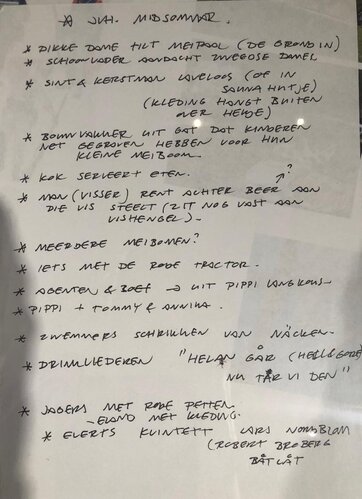 * JVH. MIDSOMMAR.
* DIKKE DAME TILT MEIPAAL (DE GROND IN)
* SCHOONVADER AANDACHT ZWEEDSE DAMES
* SINT & KERSTMAN LAVELOOS (OF IN
SAUNA HUTJE)
(KLEDING HANGT BUITEN
OVER HEKJE)
* BOUWVAKKER UIT GAT DAT KINDEREN
NET GEGRAVEN HEBBEN VOOR HUN
KLEINE MEIBOOM.
* KOK SERVEERT ETEN. ?
* MAN (VISSER) RENT ACHTER BEER AAN
DIE VIS STEELT (ZIT NOG VAST AAN
VISHENGEL).
* MEERDERE MEIBOMEN?
* IETS MET DE RODE TRACTOR.
* AGENTEN & BOEF → UIT PIPPI LANGKOUS.
* PIPPI + TOMMY & ANNIKA.
* ZWEMMERS SCHRIKKEN VAN NÄCKEN.
* DRINKLIEDEREN "HELAN GÅR (
NU TAR VI DEN"
* JAGERS MET RODE PETTEN.
- ELAND MET KLEDING.
* EVERTS KVINTETT LARS
(ROBERT BROBERG
BÅTLÅT